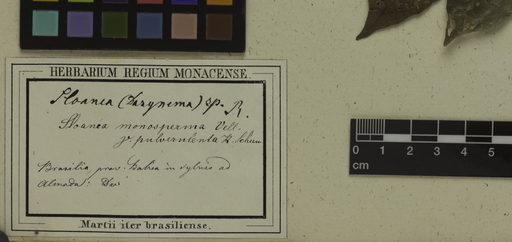 HERBARIUM REGIUM MONACENSE.
Sloanea (Dasynema) sp. R.
Sloanea monosperma Vell.
γ. pulverulenta K. Schum
Brasilia prov. Bahia in sylvis ad
Almada: Dec
Martii iter brasiliense.
0 1 2 3 4 5
cm